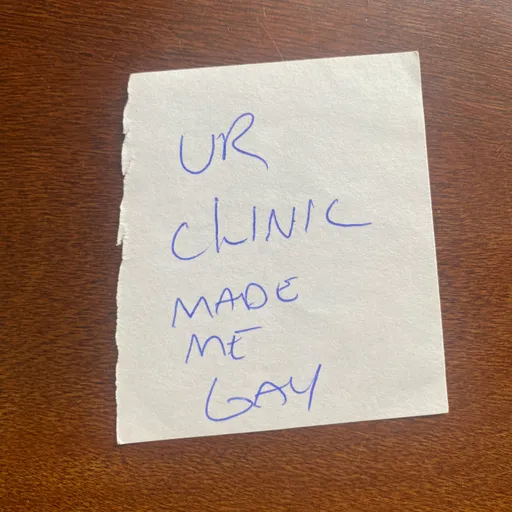 UR
CLINIC
MADE
ME
GAY